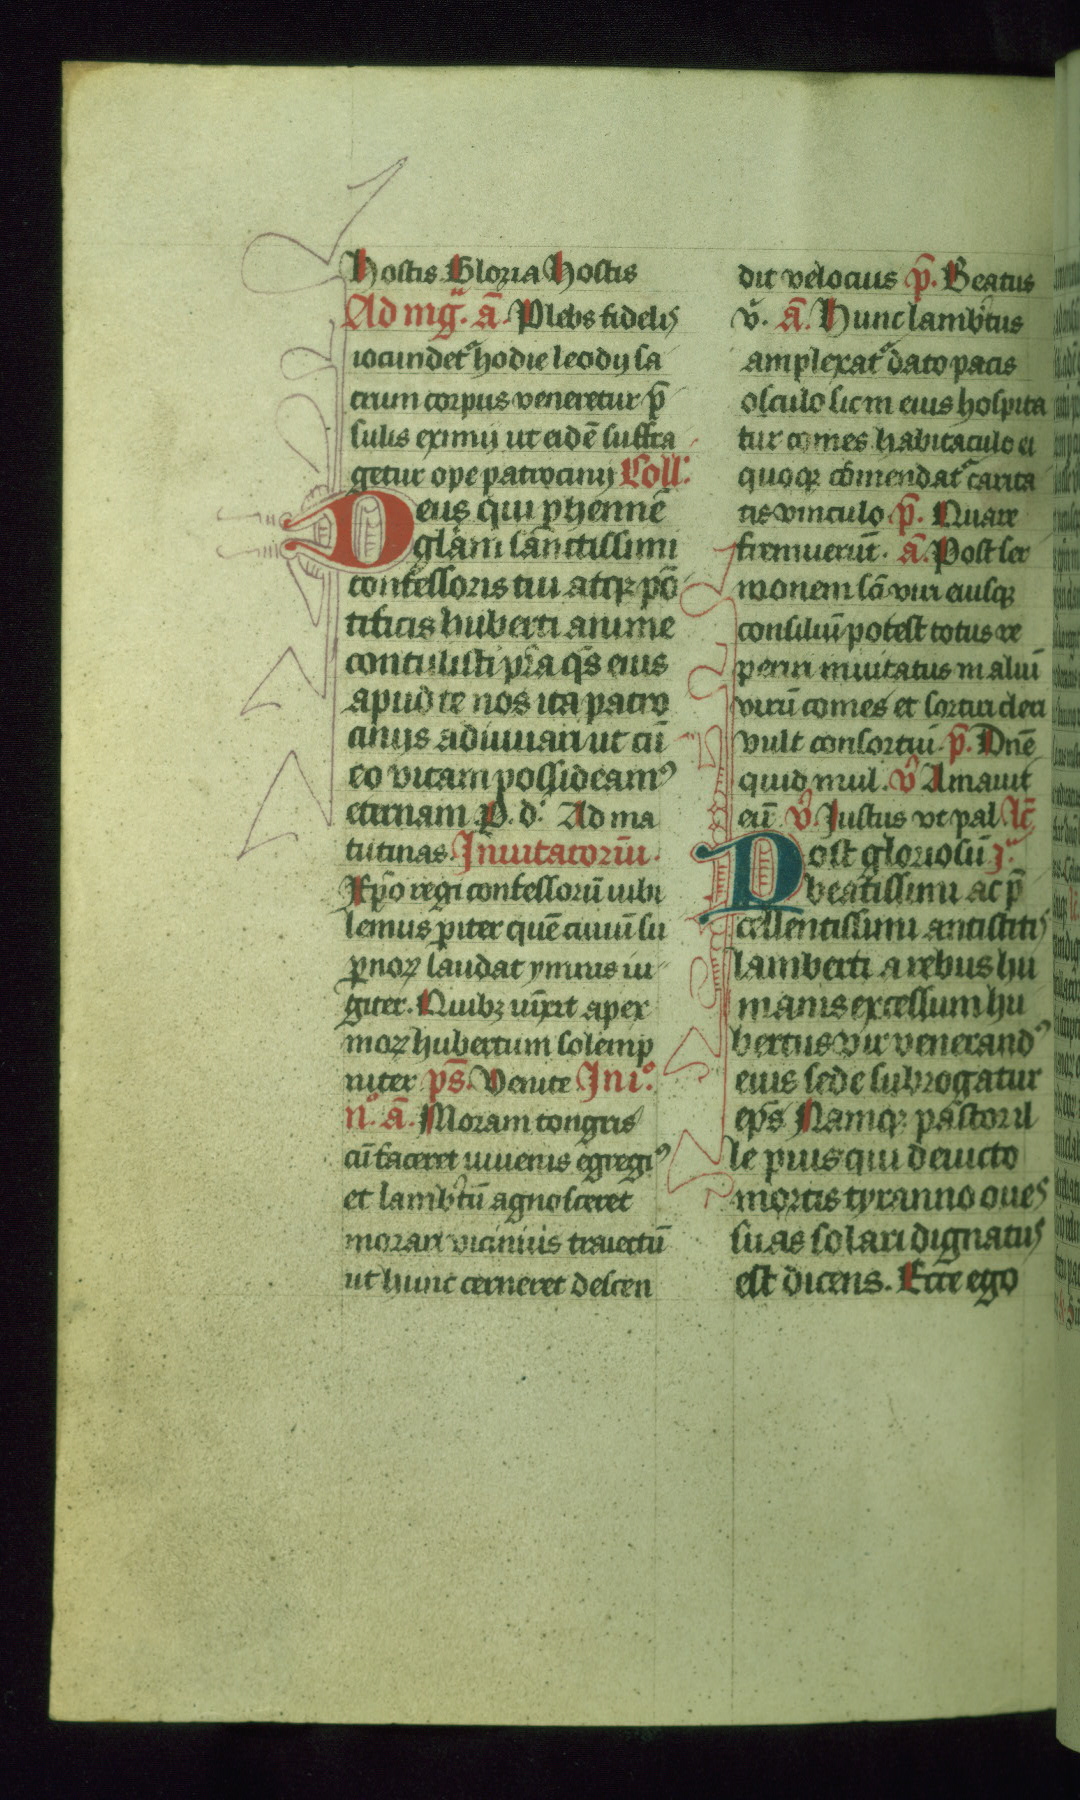 hostis Gloria hostis
Ad mg̃. ã. Plebs fidelis
iocundet᷑ hodie leodij sa
crum corpus veneretur p̃
sulis eximij ut eidē suffra
getur ope patrocinij Coll᷑:
Deus qui p̱hennē
gl̄am sanctissimi
confessoris tui atqꝫ pō
tificis huberti anime
contulisti pr̄a q̄s eius
apud te nos ita patro
cinijs adiuuari ut cū
eo vitam possideamꝰ
eternam P. d. Ad ma
tutinas Inuitatoriū.
Xp̄o regi confessorū iubi
lemus p̱iter quē ciuiū su
p̱noꝝ laudat ymnus iu
giter. Quibꝫ iūxit apex
moꝝ hubertum solemp
niter ps̄. Venite In iº
nº. ã. Moram tongris
cū faceret iuuenis egregiꝰ
et lamb̄tū agnosceret
morari vicinius traiectū
ut hunc cerneret descen
dit velocius p̄. Beatus
v̄. ã. Hunc lamb̄tus
amplexat᷑ dato pacis
osculo sicm eius hospita
tur comes habitaculo ei
quoqꝫ cōmendat᷑ carita
tis vinculo p̄. Quare
fremuerūt. ã. Post ser
monem sc̄i viri eiusqꝫ
consiliū potest totus re
perin inuitatus in aluī
virū comes et sortiri dei
vult consortiū. p̄. Dn̄e
quid mul. v̄ Amauit
eū v̄ Justus vt pal. lc̄
Post gloriosū j᷑.
beatissimi ac p̄
cellentissimi antistitis
lamberti a rebus hu
manis excessum hu
bertus vir venerandꝰ
eius sede subrogatur
ep̄s Namqꝫ pastor il
le pius qui deuicto
mortis tyranno oues
suas solari dignatus
est dicens. Ecce ego